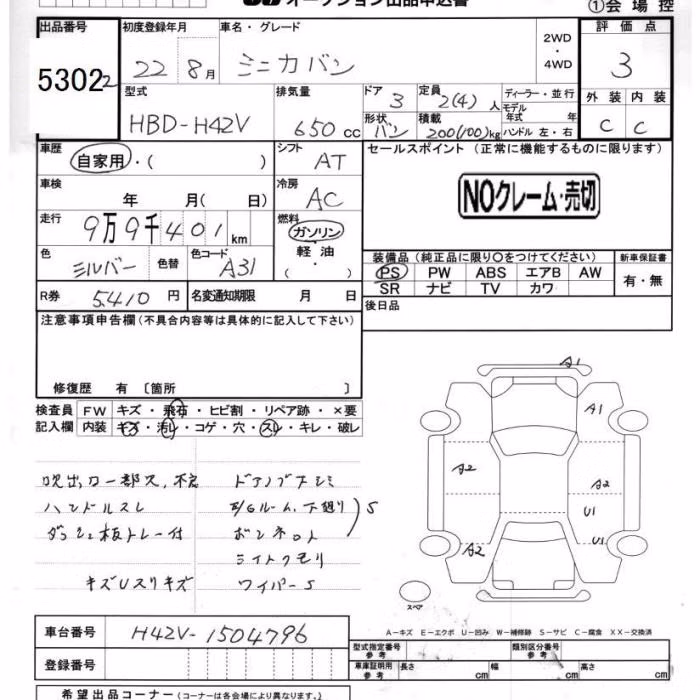 オークション出品申込書
①会場控
出品番号 初度登録年月 車名・グレード 2WD ・ 4WD 評価点
53022 22 8月 ミニカバン 3
型式 排気量 ドア 定員 ディーラー・並行 外装 内装
HBD-H42V 650cc 3 2(4)人 モデル年式 年 C C
形状 積載 ハンドル 左・右
バン 200(100)kg
車歴 自家用・( ) シフト AT セールスポイント (正常に機能するものに限ります)
車検 年 月( 日) 冷房 AC NOクレーム・売切
走行 9万9千401km 燃料 ガソリン
軽油
・( ・ )
色 シルバー 色替 色コード A31
装備品 (純正品に限り○をつけてください) 新車保証書
PS PW ABS エアB AW 有・無
SR ナビ TV カワ
R券 5410円 名変通知期限 月 日 後日品
注意事項申告欄 (不具合内容等は具体的に記入して下さい)
修復歴 有 〔箇所 〕
検査員 FW キズ・飛石・ヒビ割・リペア跡・×要
記入欄 内装 キズ・汚レ・コゲ・穴・スレ・キレ・破レ
吹出口一部欠,不良
ハンドルスレ
ダッシュ板トレー付
キズUスリキズ
ボンネット
ライトクモリ
ワイパーS
S
A1
A1
A2 A2
U1
A2 U1
スペア
A-キズ E-エクボ U-凹み W-補修跡 S-サビ C-腐食 XX-交換済
車台番号 H42V-1504796
型式指定番号 参考 類別区分番号 参考
登録番号
車庫証明用 参考 長さ cm 幅 cm 高さ cm
希望出品コーナー (コーナーは各会場により異なります。)